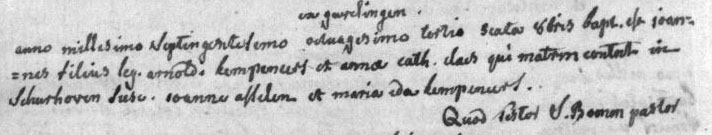 ex gurdingen.
anno millesimo septingentesimo octuagesimo tertio sexta 8bris bapt. est ioan-
=nes filius leg. arnold. kempeneers et annæ cath. claes qui matrm contrxt in
Schurhoven susc. ioanne asselen et maria ida kempeneers.
Quod testor S. Bomon pastor